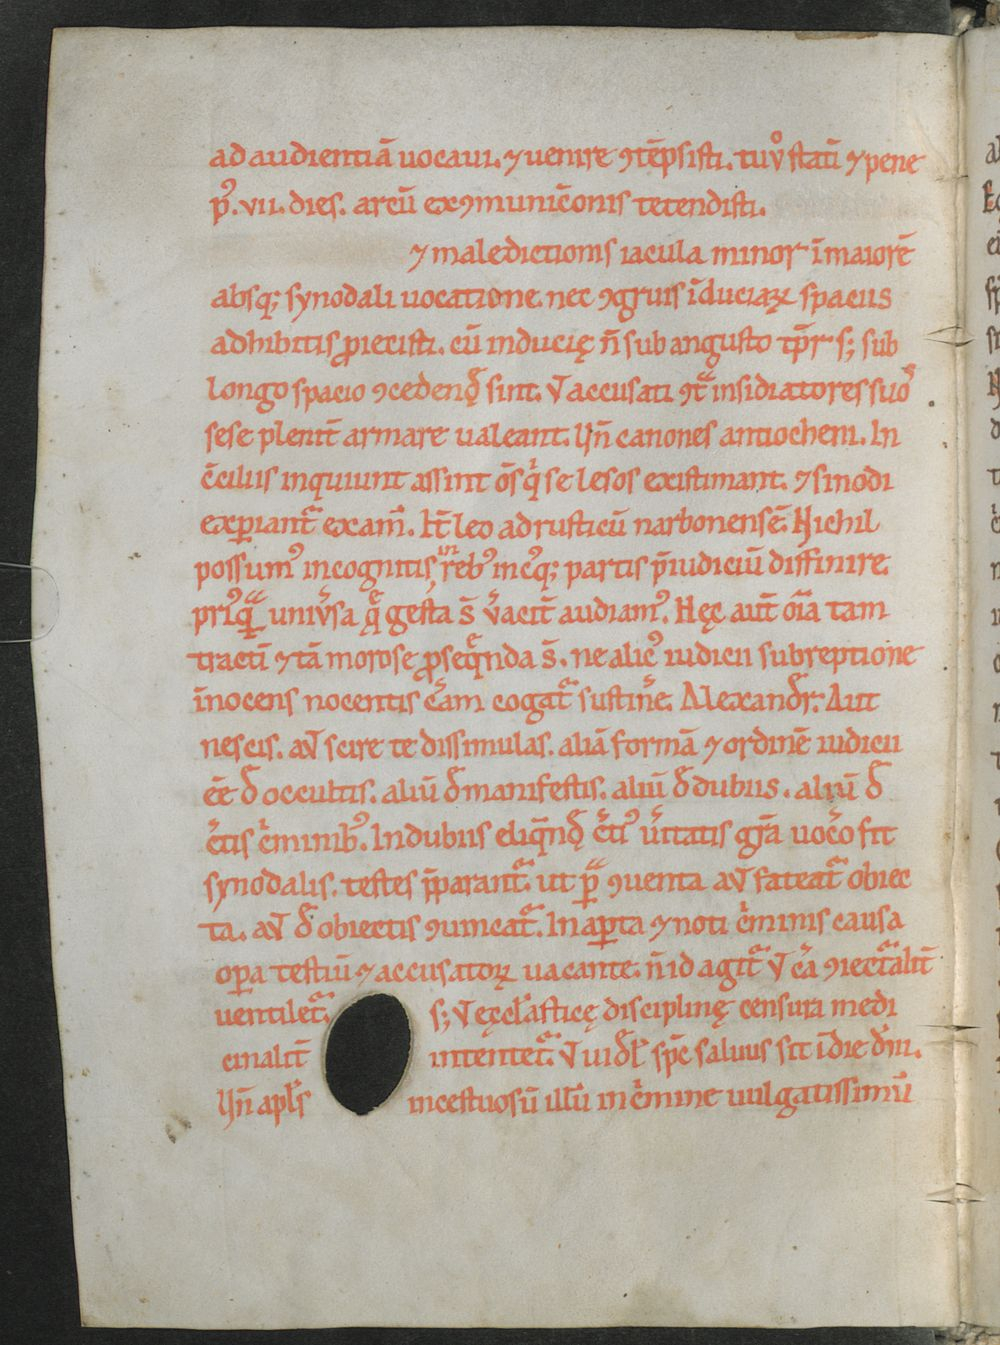 ad audientiā uocaui. ⁊ uenire ꝯtēpsisti. tuꝰ statī ⁊ pene
pꝰ. vii. dies. arcū exꝯmunicōnis tetendisti.
⁊ maledictionis iacula minor ī maiorē
absq; synodali uocatione. nec ꝯgruis īduciaꝝ spaciis
adhibitis ꝓiecisti. cū inducię n̄ sub angusto tp̄r s; sub
longo spacio ꝯcedend̄ sint. Vͭ accusati ꝯtͣ insidiatores suoˢ
sese pleniꝰt armare ualeant. Hiñ canones antiocheni. In
c̄ciliis inquiunt assint om̄s qͥ se lesos existimant. ⁊ sinodi
exꝑiantᷣ exam̄. It̄ leo ad rusticū narbonensē. Nichil
possumꝰ incognitis in rebꝰ incꝰq; partis p̄iudiciū diffinire.
priꝰqᷓ uniu̓sa q̄ gesta s̄ u̓acit̄ audiamꝰ. Hęc aut̄ oīa tam
tractī ⁊ tā morose ꝓseqᷓnda s̄. ne alicꝰ iudicii subreptione
īnocens nocentis c̄am cogatᷣ sustin̓e. Alexandr̄. Aut
nescis. aūͭ scire te dissimulas. aliā formā ⁊ ordinē iudicii
ēē d̄ occultis. aliū d̄ manifestis. aliū d̄ dubiis. aliū d̄
c̓tis cͥminibꝰ. In dubiis eliqᷓnd̄ c̓tiꝰ u̓itatis gr̄a uoc̄o fit
synodalis. testes p̄parantᷣ. ut ꝑͣ ꝯuenta aūͭ fateatᷣ obiec
ta. aūͭ d̄ obiectis ꝯuincatᷣ. In aꝑta ⁊ noti cͥminis causa
oꝑa testiū ⁊ accusatoꝝ uacante. n̄ id agitᷣ Vͭ c̄a ꝯiectᷓalit̄
uentiletᷣ. s; Vͭ ęcclͣasticę disciplinę censura medi
cinalit̄ intentetᷣ. Vͭ uidl̄ sp̄c saluus sit ī die dn̄i.
Hiñ apl̄s incestuosū illū in cͥmine uulgatissimū